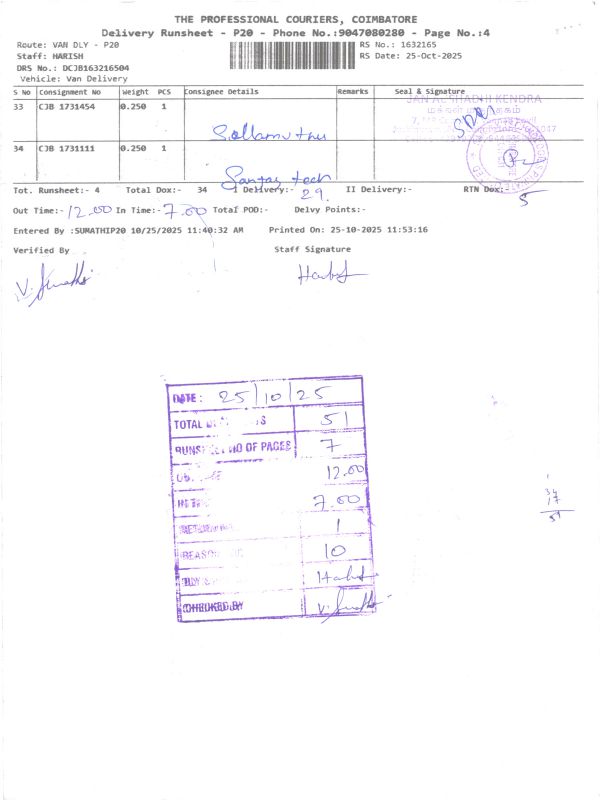 THE PROFESSIONAL COURIERS, COIMBATORE
Delivery Runsheet - P20 - Phone No.:9047080280 - Page No.:4
Route: VAN DLY - P20
RS No.: 1632165
Staff: HARISH
RS Date: 25-Oct-2025
DRS No.: DCJB163216504
Vehicle: Van Delivery
S No Consignment No Weight PCS Consignee Details Remarks Seal & Signature
JAN AUSHADHI KENDRA
மக்கள் மருந்தகம்
33 CJB 1731454 0.250 1
34 CJB 1731111 0.250 1
Tot. Runsheet:- 4 Total Dox:- 34 I Delivery:- 29. II Delivery:- RTN Dox: 5
Out Time:- 12.00 In Time:- 7.00 Total POD:- Delvy Points:-
Entered By :SUMATHIP20 10/25/2025 11:40:32 AM Printed On: 25-10-2025 11:53:16
Verified By Staff Signature
DATE : 25/10/25
TOTAL 51
NO OF PAGES 7
12.00
7.00
1
10
CHECKED BY
34
17
51